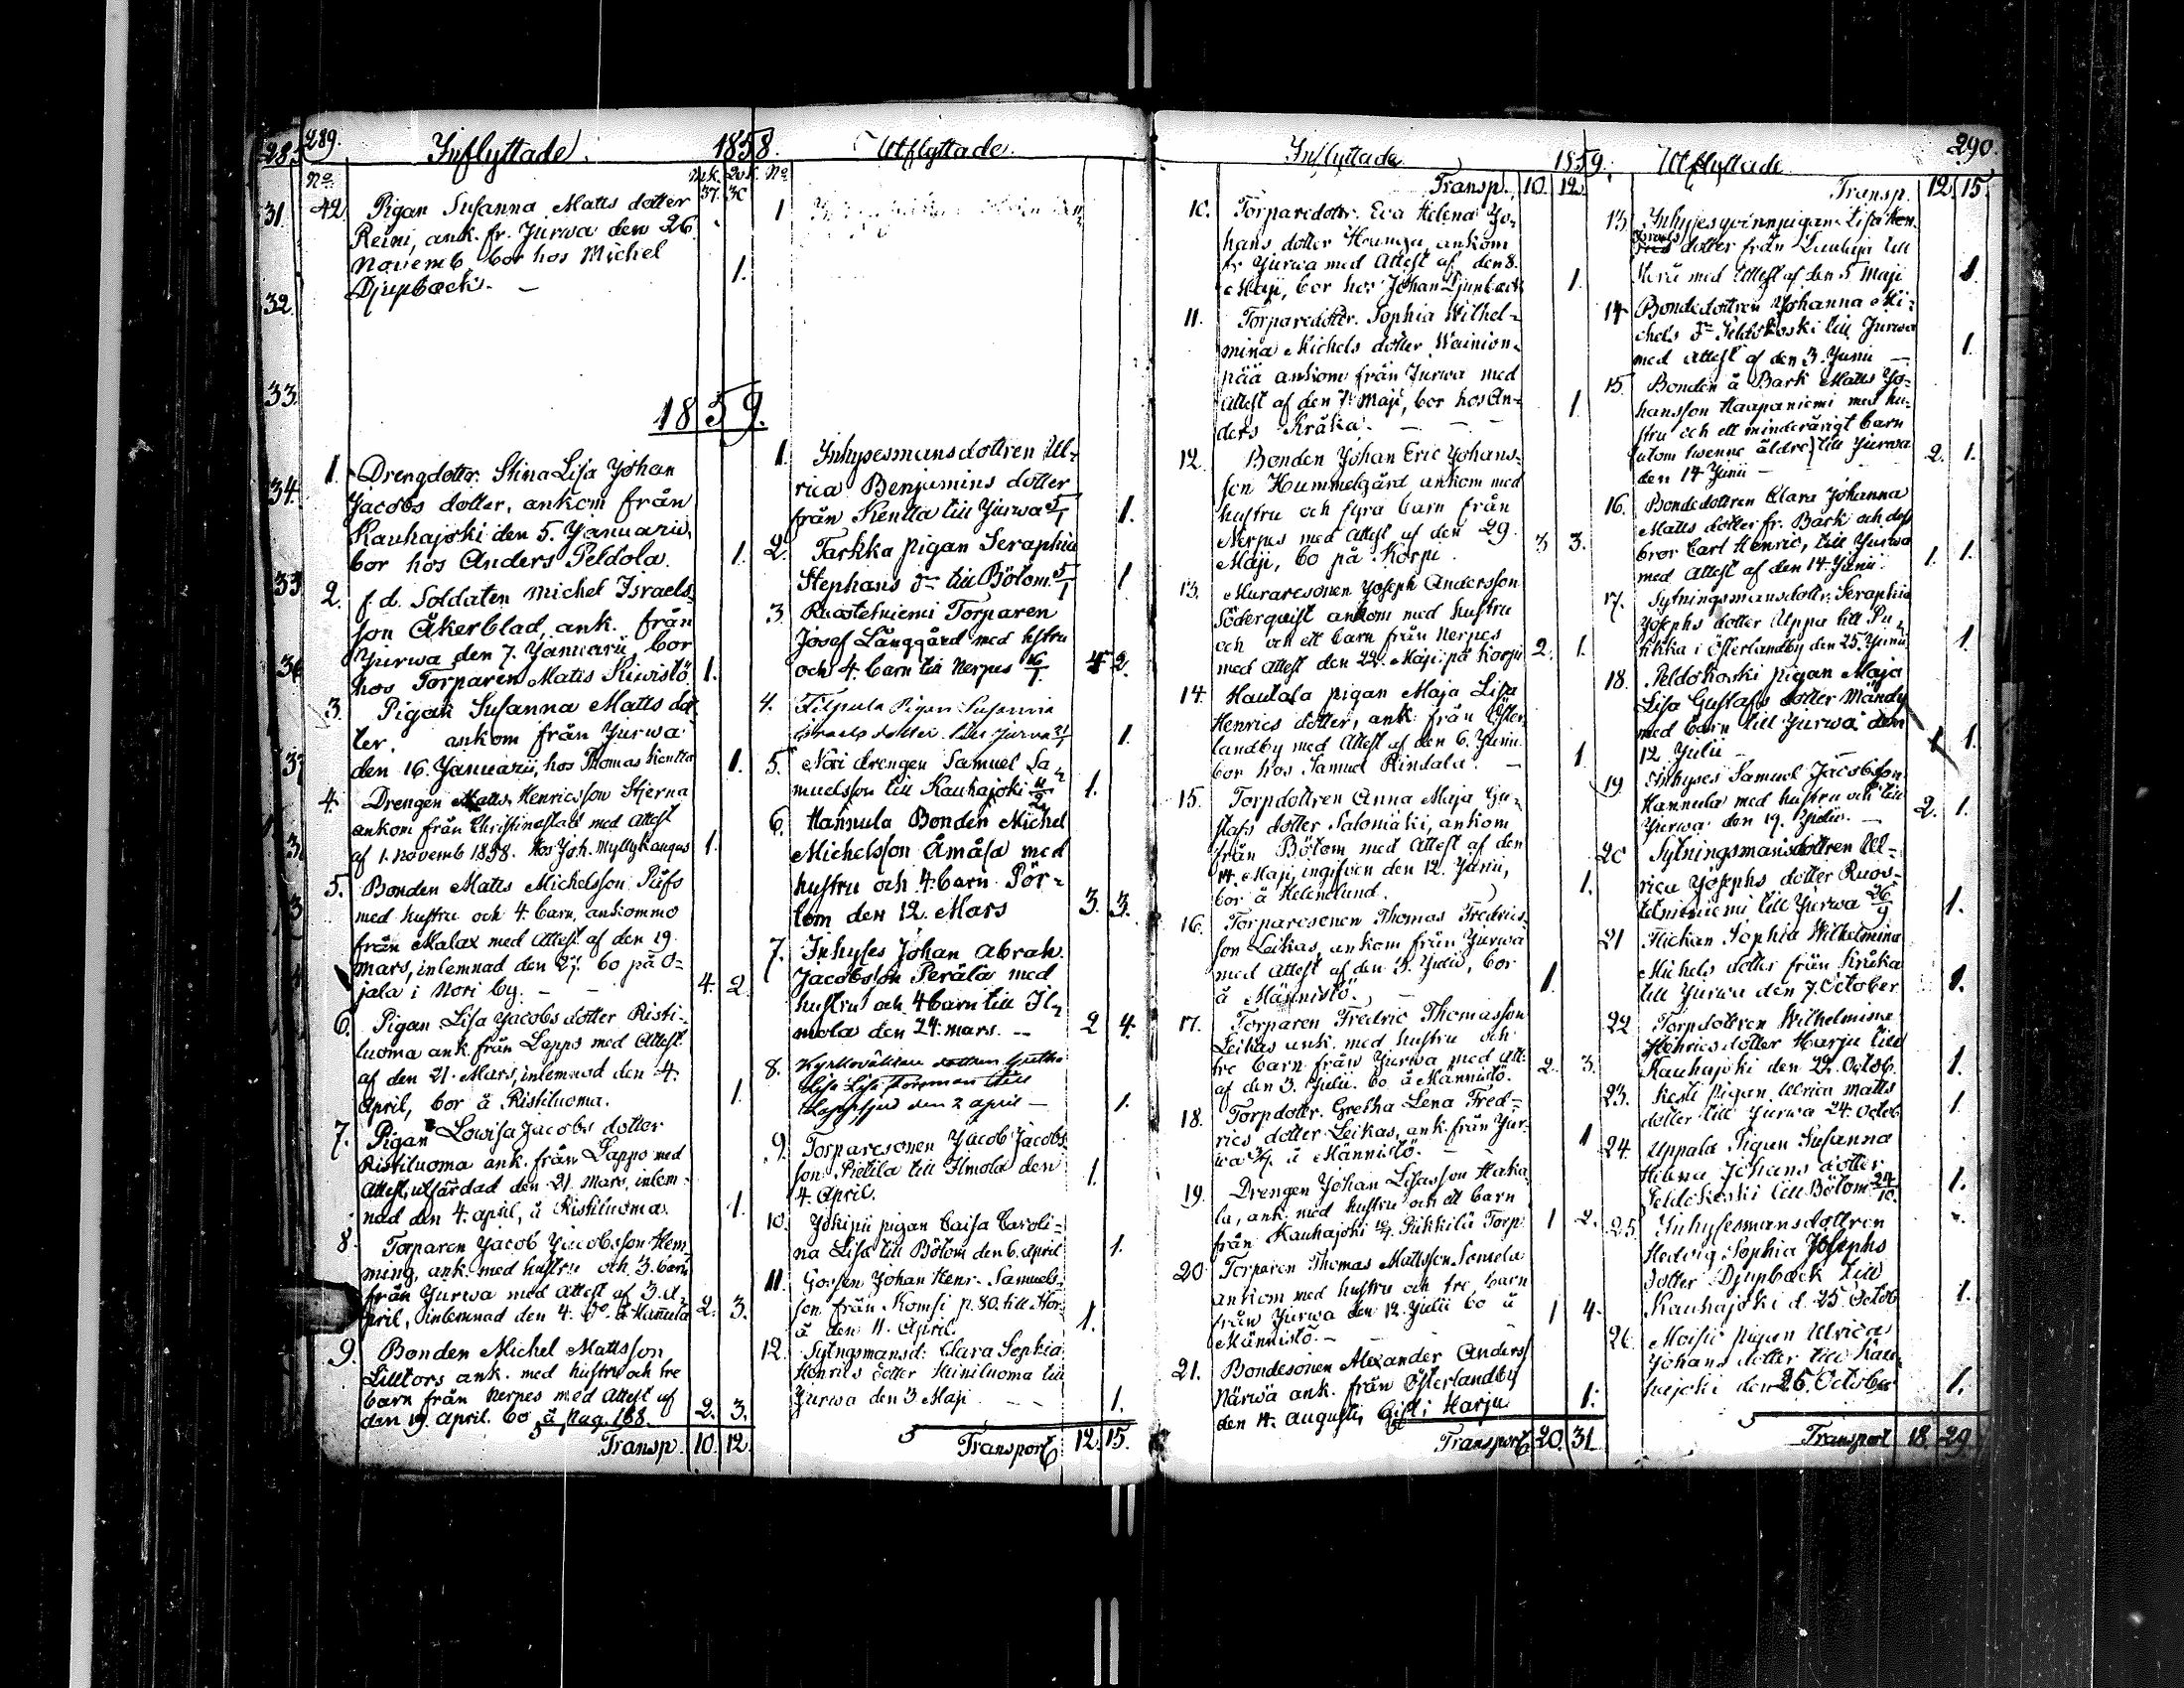 289.
Inflyttade.
1858.
No.
Mk. Qvk.
37. 30
42. Pigan Susanna Matts dotter
Reini, ank. fr. Jurwa den 26.
Novemb, bor hos Michel
Djupback. — 1.
1859.
1. Drengdottr. Stina Lisa Johan
Jacobs dotter, ankom från
Kauhajoki den 5. Januarii,
bor hos Anders Peldola. 1.
2. f.d. Soldaten Michel Israels-
son Åkerblad, ank. från
Jurwa den 7. Januarii, bor
hos Torparen Matts Kiwistö 1.
3. Pigan Susanna Matts dot-
ter, ankom från Jurwa
den 16. Januarii, hos Thomas Kentta 1.
4. Drengen Matts Henricsson Stjerna
ankom från Christinestad med Attest
af 1. Novemb 1858. hos Joh. Myllykangas 1.
5. Bonden Matts Michelsson
med hustru och 4. barn, ankommo
från Malax med Attest af den 19.
Mars, inlemnad den 27. bo på O-
jala i Nori by. — 4. 2
6. Pigan Lisa Jacobs dotter Risti-
luoma ank. från Lappo med Attest
af den 21. Mars, inlemnad den 4.
April, bor å Ristiluoma. 1.
7. Pigan Lowisa Jacobs dotter
Ristiluoma ank. från Lappo med
Attest, utfärdad den 21. Mars, inlem-
nad den 4. april, å Ristiluoma. 1.
8. Torparen Jacob Jacobsson Hem-
ming, ank. med hustru och 3. barn
från Jurwa med Attest af 3. A-
pril, inlemnad den 4. do. å Hannula 2. 3.
9. Bonden Michel Mattsson
Lilltors ank. med hustru och tre
barn från Nerpes med Attest af
den 19. April. bo å pag. 168. 2. 3.
Transp. 10. 12.
Utflyttade.
No.
1
1. Inhysesmansdottren Ul-
rica Benjamins dotter
från Kentta till Jurwa 5/1 1.
2. Tarkka pigan Seraphia
Stephans dr till Bötom 5/1 1
3. Ruostetniemi Torparen
Josef Långgård med hstru
och 4. barn till Nerpes 4 2.
4. Pigan Susanna
Israels dotter till Jurwa 31/1 1.
5. Nori drengen Samuel Sa-
muelsson till Kauhajoki 1.
6. Hannula Bonden Michel
Michelsson Åmåsa med
hustru och 4. barn Pör-
tom den 12. Mars 3. 3.
7. Inhyses Johan Abrah.
Jacobsson Perälä med
hustru och 4 barn till Il-
mola den 24. Mars. — 2 4.
8. dottren Gretha
Lisa Lisa till
Lappfjerd den 2 april — 1.
9. Torparesonen Jacob Jacobs
son Pietilä till Ilmola den
4. April. 1.
10. Jokipii pigan Caisa Caroli-
na Lisa till Bötom den 6. April 1.
11. Gossen Johan Henr. Samuels-
son från Komsi p. 80. till Kor-
å den 11. April. 1.
12. Sytngsmansd: Clara Sophia
Henrics dotter Heiniluoma till
Jurwa den 3 Maji — 1.
Transport 12. 15.
Inflyttade
1859.
Transp. 10. 12.
10. Torparedottr. Eva Helena Jo-
hans dotter ankom
fr Jurwa med Attest af den 8.
Maji, bor hos Johan Djupback 1.
11. Torparedottr. Sophia Wilhel-
mina Michels dotter Wainion-
pää ankom från Jurwa med
Attest af den 7. Maji, bor hos An-
ders Kråka. — 1.
12. Bonden Johan Eric Johans-
son Hummelgård ankom med
hustru och fyra barn från
Nerpes med Attest af den 29.
Maji, bo på Korpi. 3 3.
13. Muraresonen Joseph Andersson
Söderqvist ankom med hustru
och och ett barn från Nerpes
med Attest den 22. Maji: på Korpi 2. 1.
14. Hautala pigan Maja Lisa
Henrics dotter, ank. från Öster-
landby med Attest af den 6. Junii
bor hos Samuel Rindala. — 1.
15. Torpdottren Anna Maja Gu-
stafs dotter Salomäki, ankom
från Bötom med Attest af den
14. Maji, ingifven den 12. Junii,
bor å Helenelund. 1.
16. Torparesonen Thomas Fredrics-
son Leikas, ankom från Jurwa
med Attest af den 3. Julii, bor
å Männistö. 1.
17. Torparen Fredric Thomasson
Leikas ank. med hustru och
tre barn från Jurwa med Att.
af den 3. Julii. bo å Männistö. 2. 3.
18. Torpdottr. Gretha Lena Fred-
rics dotter Leikas, ank. från Jur-
wa 3/7. å Männistö. — 1
19. Drengen Johan Lisasson Haka-
la, ank. med hustru och ett barn
från Kauhajoki 10/7. Pukkila Torp. 1 2.
20. Torparen Thomas Mattsson
ankom med hustru och tre barn
från Jurwa den 12. Julii bo å
Männistö. — 1 4.
21. Bondesonen Alexander Anders
Närwä ank. från Österlandby
den 14. Augusti, Gift i Harju 1.
Transport 20. 31
Utflyttade
290.
Transp. 12. 15.
13. Inhysesqvinnpigan Lisa
Israels dotter från till
med Attest af den 5 Maji 1.
14. Bondedottren Johanna Mi-
chels dr Peldokoski till Jurwa
med attest af den 3. Junii — 1.
15. Bonden å Bark Matts Jo-
hansson Haapaniemi med hu-
stru och ett minderårigt barn
(utom twenne äldre) till Jurwa
den 14 Junii — 2. 1.
16. Bondedottren Clara Johanna
Matts dotter fr. Bark och dess
bror Carl Henric, till Jurwa
med Attest af den 14. Junii. 1. 1.
17. Sytningsmansdottr. Seraphia
Josephs dotter Uppa till
i Österlandby den 25. Junii 1.
18. Peldokoski pigan Maja
Lisa Gustafs dotter Mändy
med barn till Jurwa den
12. Julii — 1 1.
19. Inhyses Samuel Jacobsson
Hannula med hustru och till
Jurwa den 19. Julii. — 2. 1.
20 Sytningsmansdottren Ul-
rica Josephs dotter Ruos-
tetniemi till Jurwa 26/9 1.
21 Flickan Sophia Wilhelmina
Michels dotter från Kråka
till Jurwa den 7. October 1.
22 Torpdottren Wilhelmina
Henricsdotter Harju till
Kauhajoki den 22. Octob. 1.
23. Kesti pigan Ulrica Matts
dotter till Jurwa 24. Octob 1.
24. Uppala Pigan Susanna
Helena Johans dotter
Peldokoski till Bötom 24/10. 1.
25. Inhysesmansdottren
Hedvig Sophia Josephs
dotter Djupback till
Kauhajoki d. 25 Octob 1.
26. Moisio pigan Ulrica
Johans dotter till Kau-
hajoki den 25. October 1.
Transport 18. 29
28.
31.
32.
33.
34.